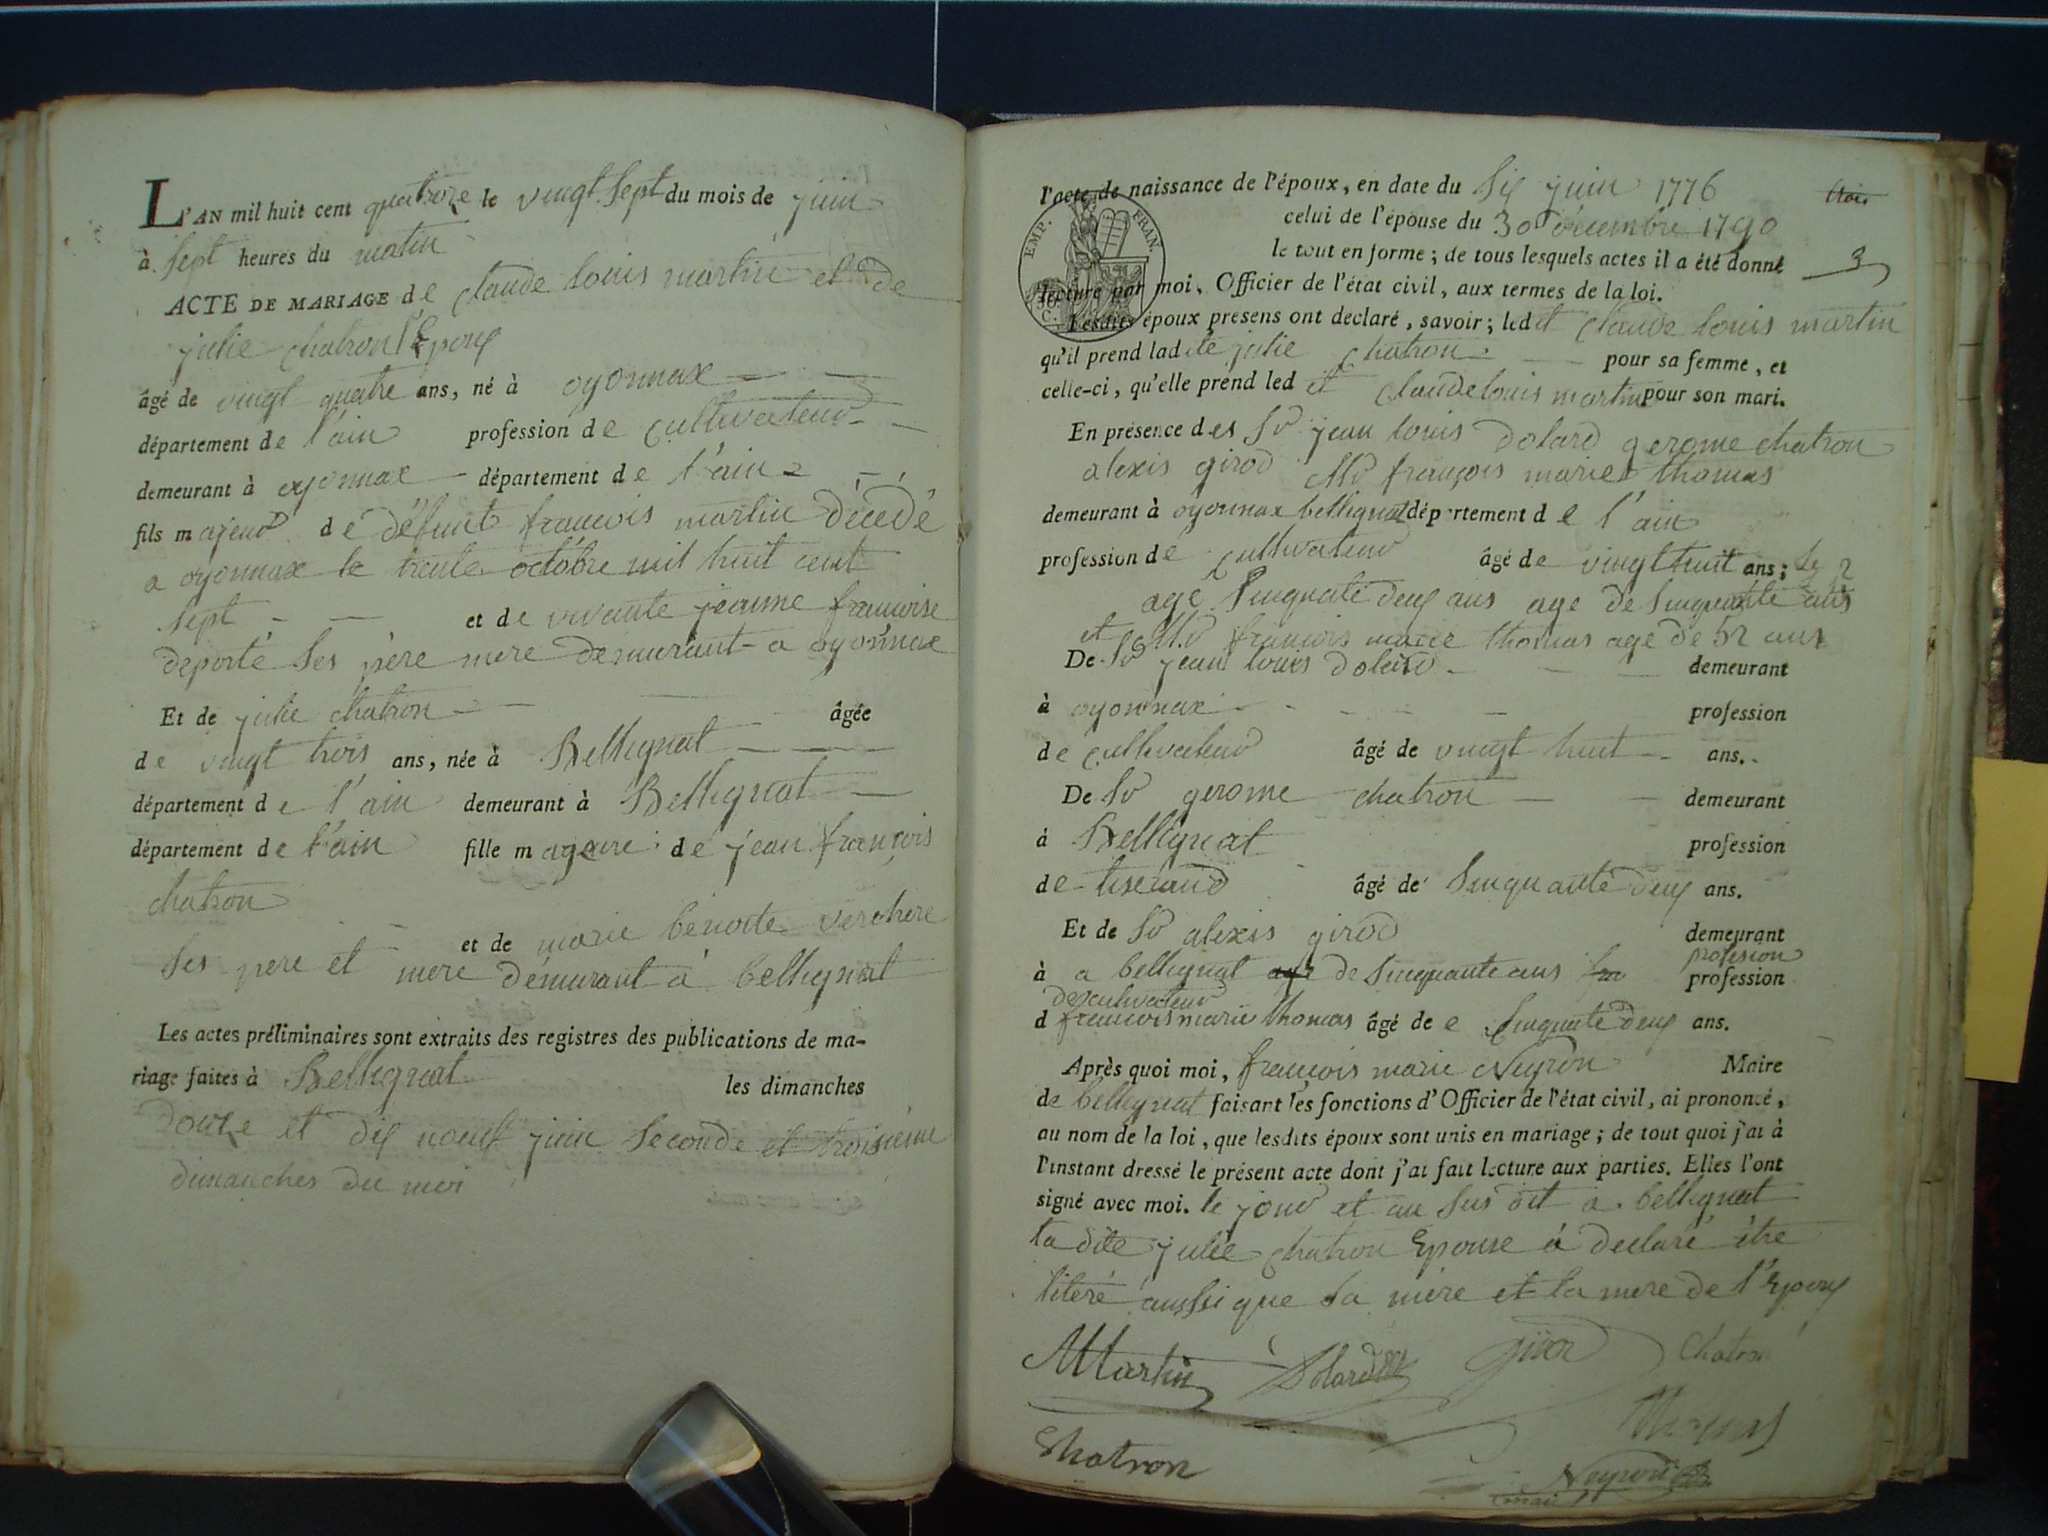 L'AN mil huit cent quatorze le vingt sept du mois de juin
à sept heures du matin
ACTE DE MARIAGE de claude louis martin et de
julie chatron l'Epoux
âgé de vingt quatre ans, né à oyonnax
département de l'ain profession de cultivateur
demeurant à oyonnax département de l'ain
fils majeur de défunt francois martin décédé
a oyonnax le trente octobre mil huit cent
sept et de vivante jeanne francoise
deporte ses père mere demeurant a oyonnax
Et de julie chatron âgée
de vingt trois ans, née à Bellignat
département de l'ain demeurant à Bellignat
département de l'ain fille mageure de jean françois
chatron
et de marie benoite verchere
ses pere et mere demurant à bellignat
Les actes préliminaires sont extraits des registres des publications de ma-
riage faites à Bellignat les dimanches
douze et dix neuf juin seconde et troisieme
dimanches du moi
l'acte de naissance de l'époux, en date du six juin 1776
celui de l'épouse du 30 decembre 1790
le tout en forme ; de tous lesquels actes il a été donné
3
EMP. FRAN.
lecture par moi, Officier de l'état civil, aux termes de la loi.
Lesdits époux présens ont declaré, savoir ; ledit claude louis martin
qu'il prend ladite julie chatron pour sa femme, et
celle-ci, qu'elle prend ledit claude louis martin pour son mari.
En présence des Sr jean louis dolard gerome chatron
alexis girod francois marie thomas
demeurant à oyonnax bellignat département de l'ain
profession de cultivateur âgé de vingt huit ans ;
age sinquate deux ans age de sinquante ans
et francois marie thomas age de 52 ans
De Sr jean louis dolard demeurant
à oyonnax profession
de cultivateur âgé de vingt huit ans.
De Sr gerome chatron demeurant
à Bellignat profession
de tiserand âgé de sinquante deux ans.
Et de Sr alexis girod demeurant
profesion
à a bellignat age de sinquante ans profession
de cultivateur
d francois marie thomas âgé de e sinquante deux ans.
Après quoi moi, françois marie Neyron Maire
de bellignat faisant les fonctions d'Officier de l'état civil, ai prononcé,
au nom de la loi, que lesdits époux sont unis en mariage ; de tout quoi j'ai à
l'instant dressé le présent acte dont j'ai fait lecture aux parties. Elles l'ont
signé avec moi. le jour et an sus dit a bellignat
la dite julie chatron Epouse à declaré être
literé aussi que sa mère et la mere de l'Epoux
Martin Dolard girod Chatron
Thomas
Chatron
Neyron
maire